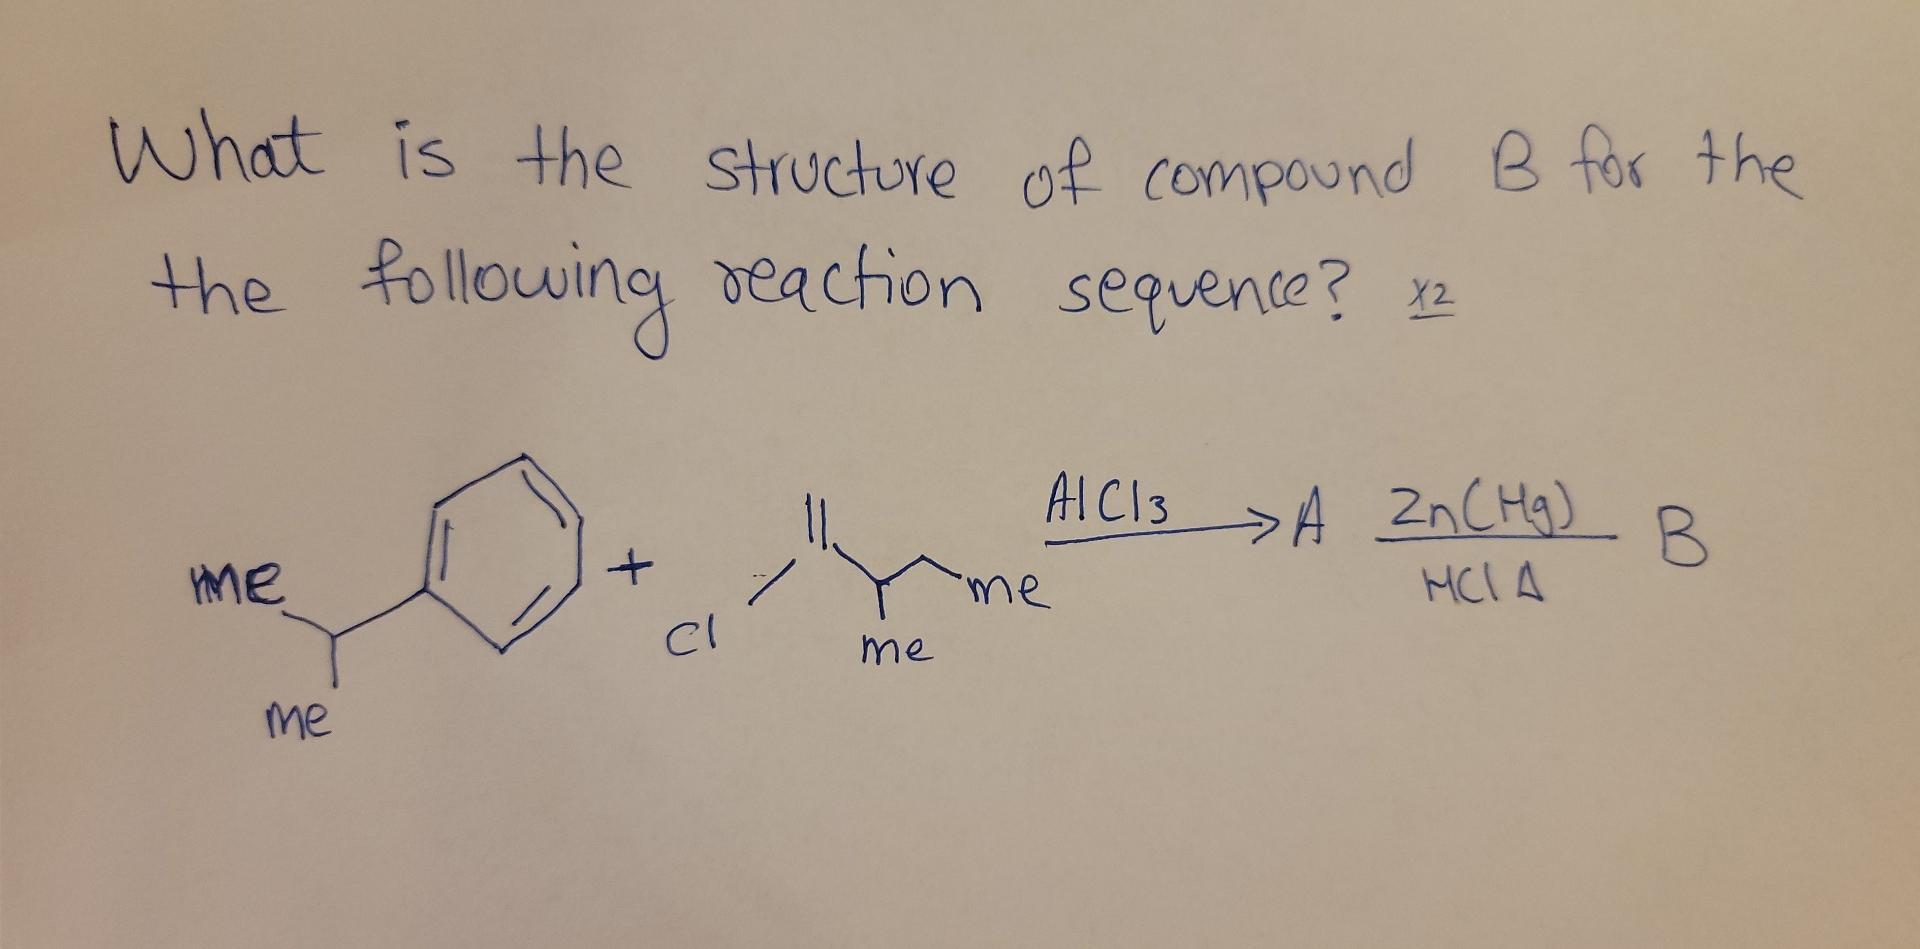 What is the structure of compound B for the
the following reaction sequence? x2
AlCl3 A Zn(Hg) B
me + me HCl Δ
Cl me
me